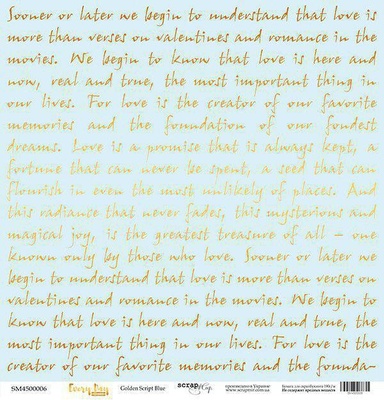 Sooner or later we begin to understand that love is
more than verses on valentines and romance in the
movies. We begin to know that love is here and
now, real and true, the most important thing in
our lives. For love is the creator of our favorite
memories and the foundation of our fondest
dreams. Love is a promise that is always kept, a
fortune that can never be spent, a seed that can
flourish in even the most unlikely of places. And
this radiance that never fades, this mysterious and
magical joy, is the greatest treasure of all – one
known only by those who love. Sooner or later we
begin to understand that love is more than verses on
valentines and romance in the movies. We begin to
know that love is here and now, real and true, the
most important thing in our lives. For love is the
creator of our favorite memories and the founda-
SM4500006 Every Day Golden Script Blue scrap